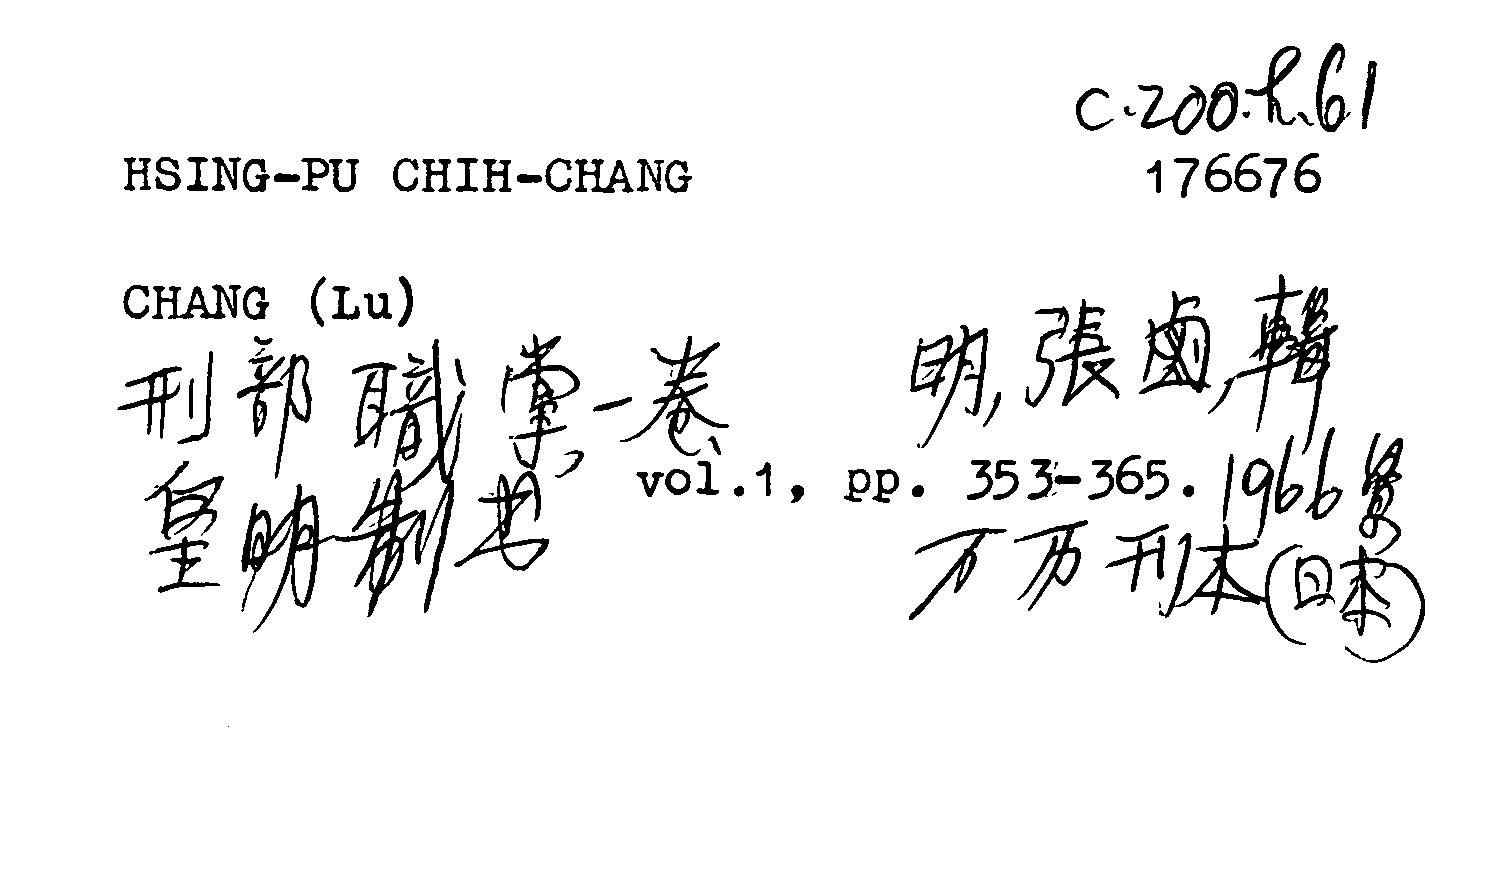 C.200.h.61
HSING-PU CHIH-CHANG 176676
CHANG (Lu)
刑部職掌,一卷、 明,張鹵,輯
皇明制书 vol.1, pp. 353-365. 1966 景
万历刊本(日本)